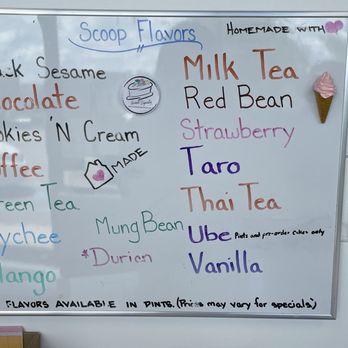 Scoop Flavors
HOMEMADE WITH
ck Sesame
ocolate
okies 'N Cream
ffee
reen Tea
ychee
ango
MADE
Mung Bean
*Durian
Milk Tea
Red Bean
Strawberry
Taro
Thai Tea
Ube Pints and pre-order cakes only
Vanilla
FLAVORS AVAILABLE IN PINTS. (Prices may vary for specials)